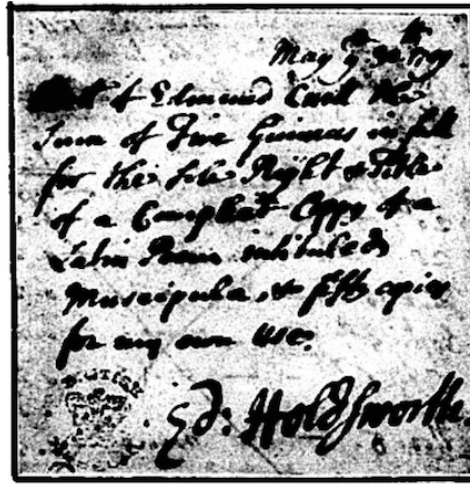 May ye
of Edmund Curll the
Sum of Five Guineas in full
for the Sole Right & Title
of a Compleat Coppy of a
Latin Poem intituled
Muscipula, & fifty copies
for my own use.
Ed: Holdsworth.